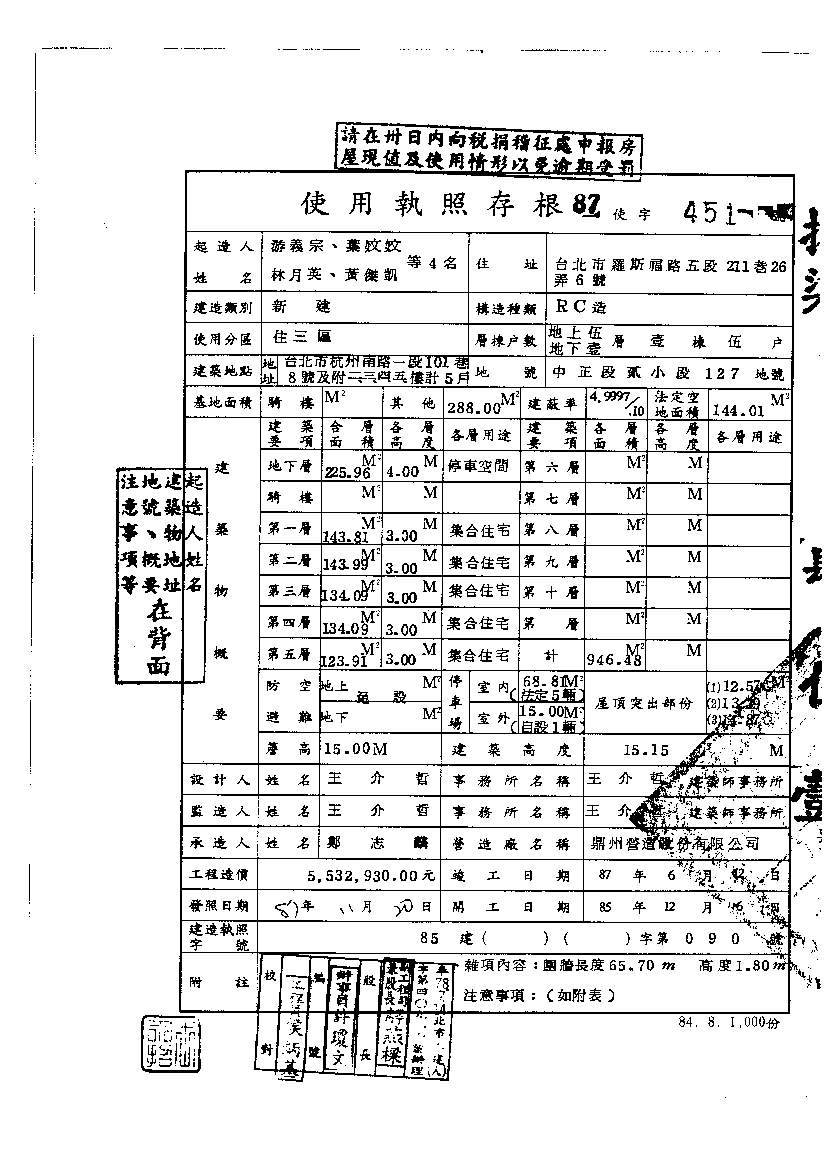 請在卅日內向稅捐稽征處申報房
屋現值及使用情形以免逾期受罰
使用執照存根87使字 451
起造人姓名 游義宗、葉姣姣 林月英、黃傑凱 等4名 住址 台北市羅斯福路五段211巷26弄6號
建造類別 新建 構造種類 RC造
使用分區 住三區 層棟戶數 地上伍 地下壹 層壹棟伍戶
建築地點 地址 台北市杭州南路一段101巷 8號及附二三四五樓計5戶 地號 中正段貳小段127地號
基地面積 騎樓 M² 其他 288.00M² 建蔽率 4.9997/.10 法定空地面積 144.01M²
建築物概要
建築要項 各層面積 各層高度 各層用途 建築要項 各層面積 各層高度 各層用途
地下層 225.96M² 4.00M 停車空間 第六層 M² M
騎樓 M² M 第七層 M² M
第一層 143.81M² 3.00M 集合住宅 第八層 M² M
第二層 143.99M² 3.00M 集合住宅 第九層 M² M
第三層 134.09M² 3.00M 集合住宅 第十層 M² M
第四層 134.09M² 3.00M 集合住宅 第層 M² M
第五層 123.91M² 3.00M 集合住宅 計 946.48M² M
防空避難 地上 M² 地下 M² 免設 停車場 室內 68.81M² (法定5輛) 室外 15.00M² (自設1輛) 屋頂突出部份 (1)12.57 (2) (3) M
簷高 15.00M 建築高度 15.15 M
設計人 姓名 王介哲 事務所名稱 王介哲建築師事務所
監造人 姓名 王介哲 事務所名稱 王介哲建築師事務所
承造人 姓名 鄭志 營造廠名稱 鼎州營造股份有限公司
工程造價 5,532,930.00元 竣工日期 87年6月12日
發照日期 87年11月20日 開工日期 85年12月16日
建造執照字號 85建( )( )字第090號
附註 雜項內容:圍牆長度65.70m 高度1.80m
注意事項:(如附表)
84.8.1,000份
起造人姓名
建築物地址
地號、概要
注意事項等
在背面
校對
號
股長